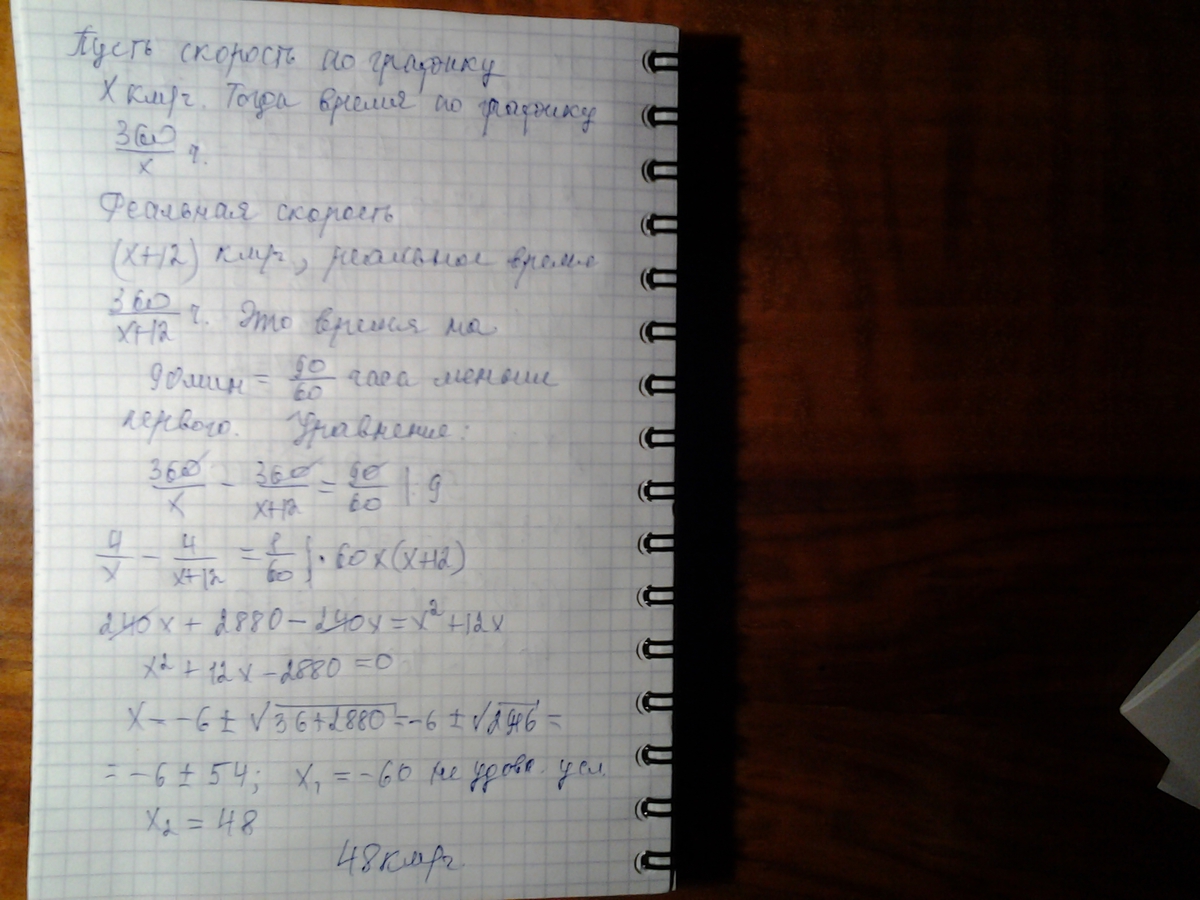 Пусть скорость по графику
x км/ч. Тогда время по графику
360/x ч.
Реальная скорость
(x+12) км/ч, реальное время
360/x+12 ч. Это время на
90мин = 90/60 часа меньше
первого. Уравнение:
360/x - 360/x+12 = 90/60 | : 9
4/x - 4/x+12 = 1/60 | · 60x(x+12)
240x + 2880 - 240x = x² + 12x
x² + 12x - 2880 = 0
x = -6 ± √36+2880 = -6 ± √2916 =
= -6 ± 54; x₁ = -60 не удовл. усл.
x₂ = 48
48км/ч